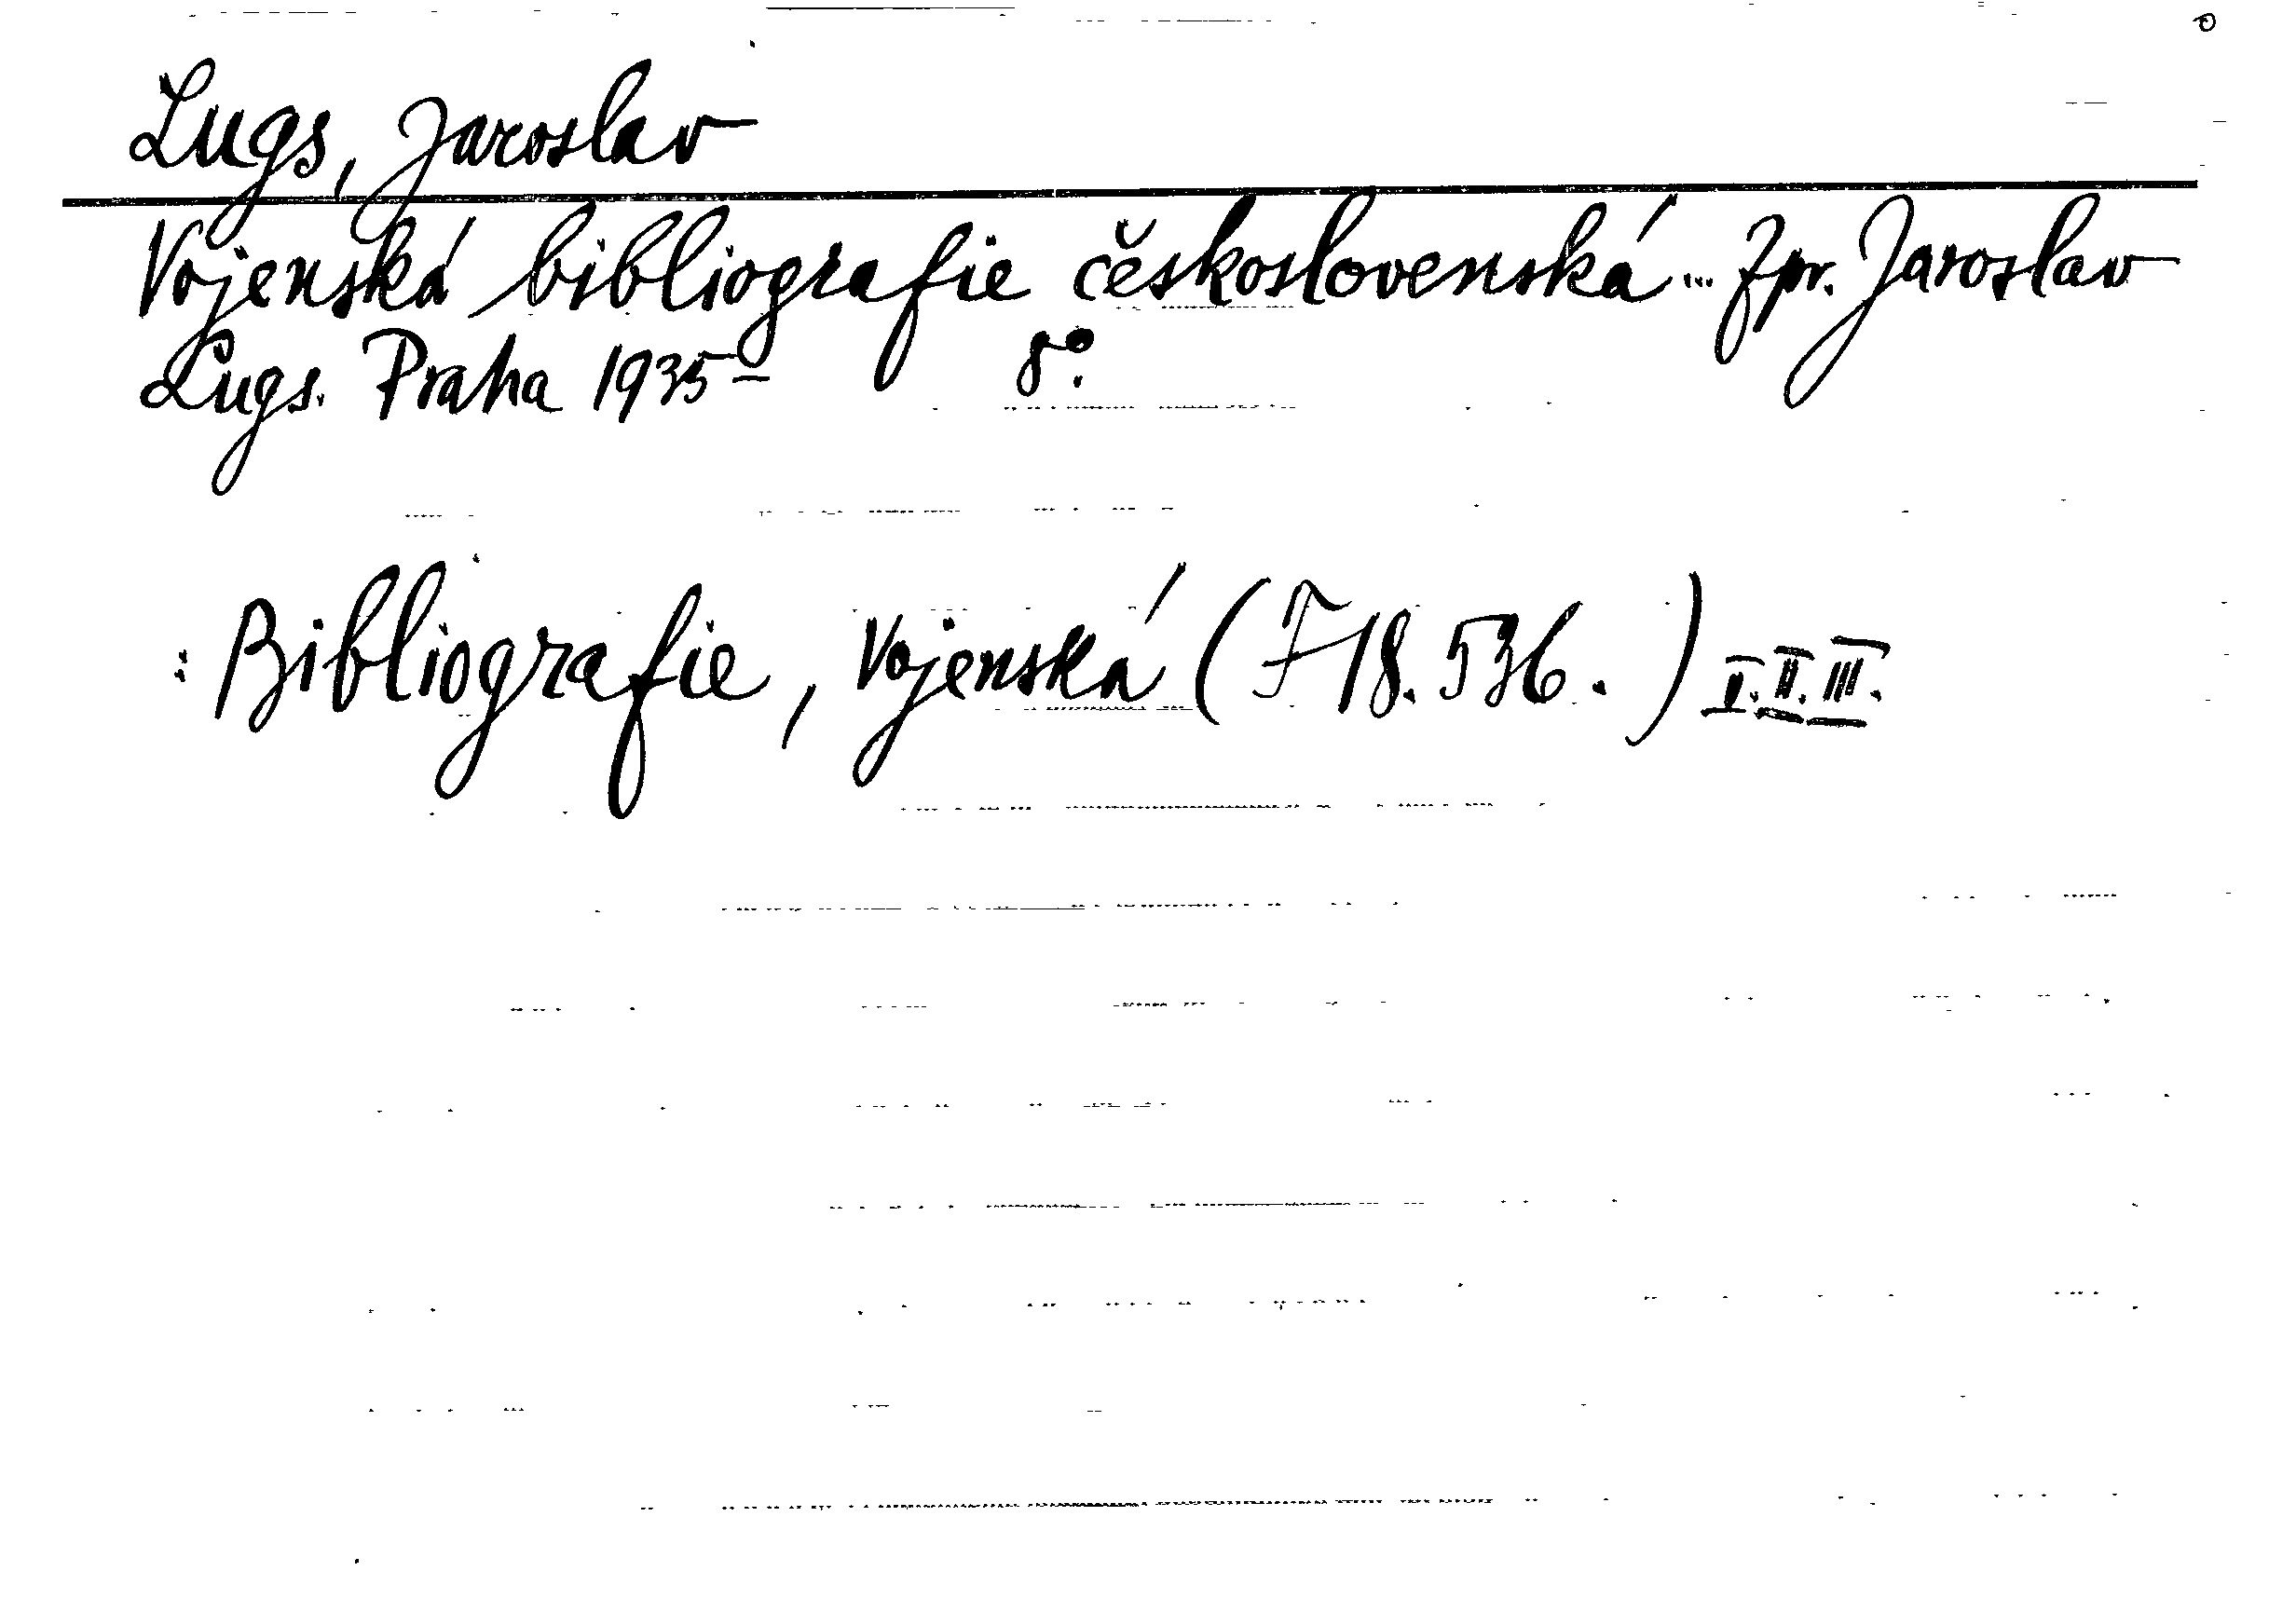 Lugs, Jaroslav
Vojenská bibliografie československá... Zpr. Jaroslav
Lugs. Praha 1935- 8°.
: Bibliografie, Vojenská (F 18.536.) I. II. III.